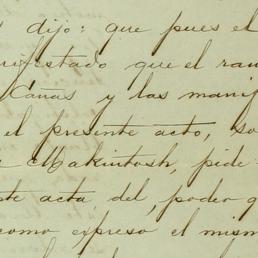 dijo: que pues el
nifestado que el ran
Cañas y las manif
el presente acto, so
Makintosh, pide
te acta del, poder q
como espreso el mism